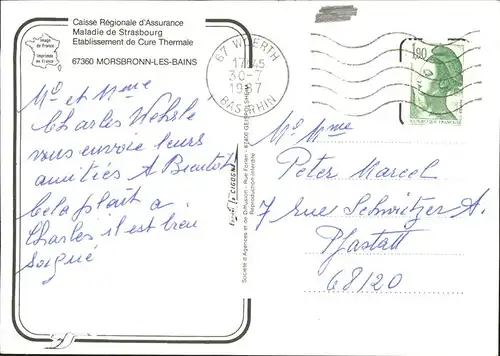 Caisse Régionale d'Assurance
Maladie de Strasbourg
Etablissement de Cure Thermale
67360 MORSBRONN-LES-BAINS
Image
de France
Imprimée
en France
67 WOERTH
17H45
30-7
1987
BAS-RHIN
1,90
REPUBLIQUE FRANÇAISE
Mr et Mme
Charles Wehrle
vous envoie leurs
amitiés A Bientôt
Cela plaît a
Charles, il est bien
soigné
Mr Mme
Peter Marcel
7 rue Schwitzer A.
Pfastatt
68120
la CIGOGNE
Société d'Agences et de Diffusion - Rue Fédien - 67400 GEISPOLSHEIM
Reproduction interdite